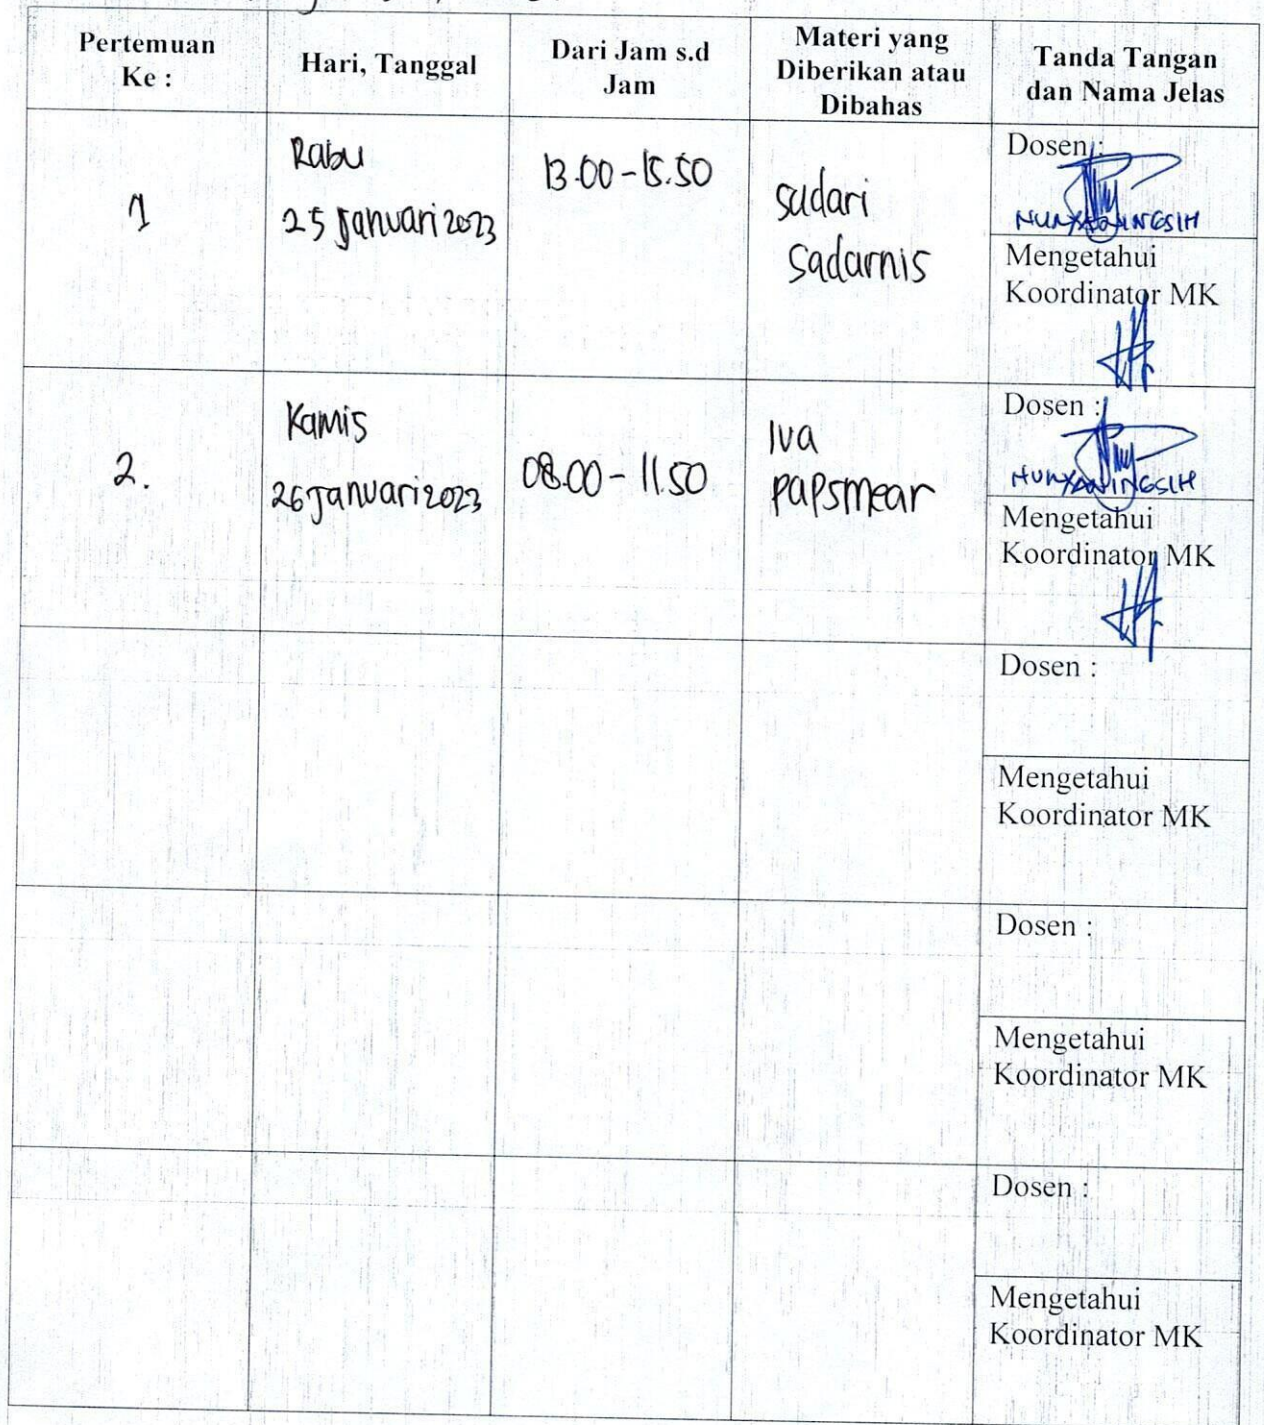 Pertemuan
Ke :
Hari, Tanggal
Dari Jam s.d
Jam
Materi yang
Diberikan atau
Dibahas
Tanda Tangan
dan Nama Jelas
1
Rabu
25 Januari 2023
13.00 - 15.50
sadari
Sadarnis
Dosen :
NURYANINGSIH
Mengetahui
Koordinator MK
2.
Kamis
26 Januari 2023
08.00 - 11.50
Iva
papsmear
Dosen :
NURYANINGSIH
Mengetahui
Koordinator MK
Dosen :
Mengetahui
Koordinator MK
Dosen :
Mengetahui
Koordinator MK
Dosen :
Mengetahui
Koordinator MK